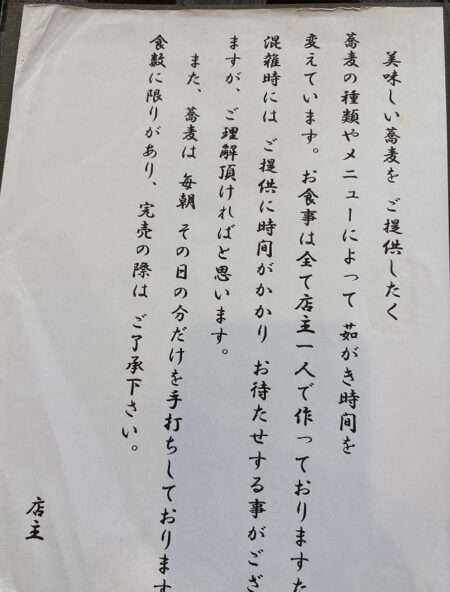 美味しい蕎麦を ご提供したく
蕎麦の種類やメニューによって 茹がき時間を
変えています。お食事は全て店主一人で作っておりますた
混雑時には ご提供に時間がかかり お待たせする事がござ
ますが、ご理解頂ければと思います。
また、蕎麦は 毎朝 その日の分だけを手打ちしております
食数に限りがあり、完売の際は ご了承下さい。
店主